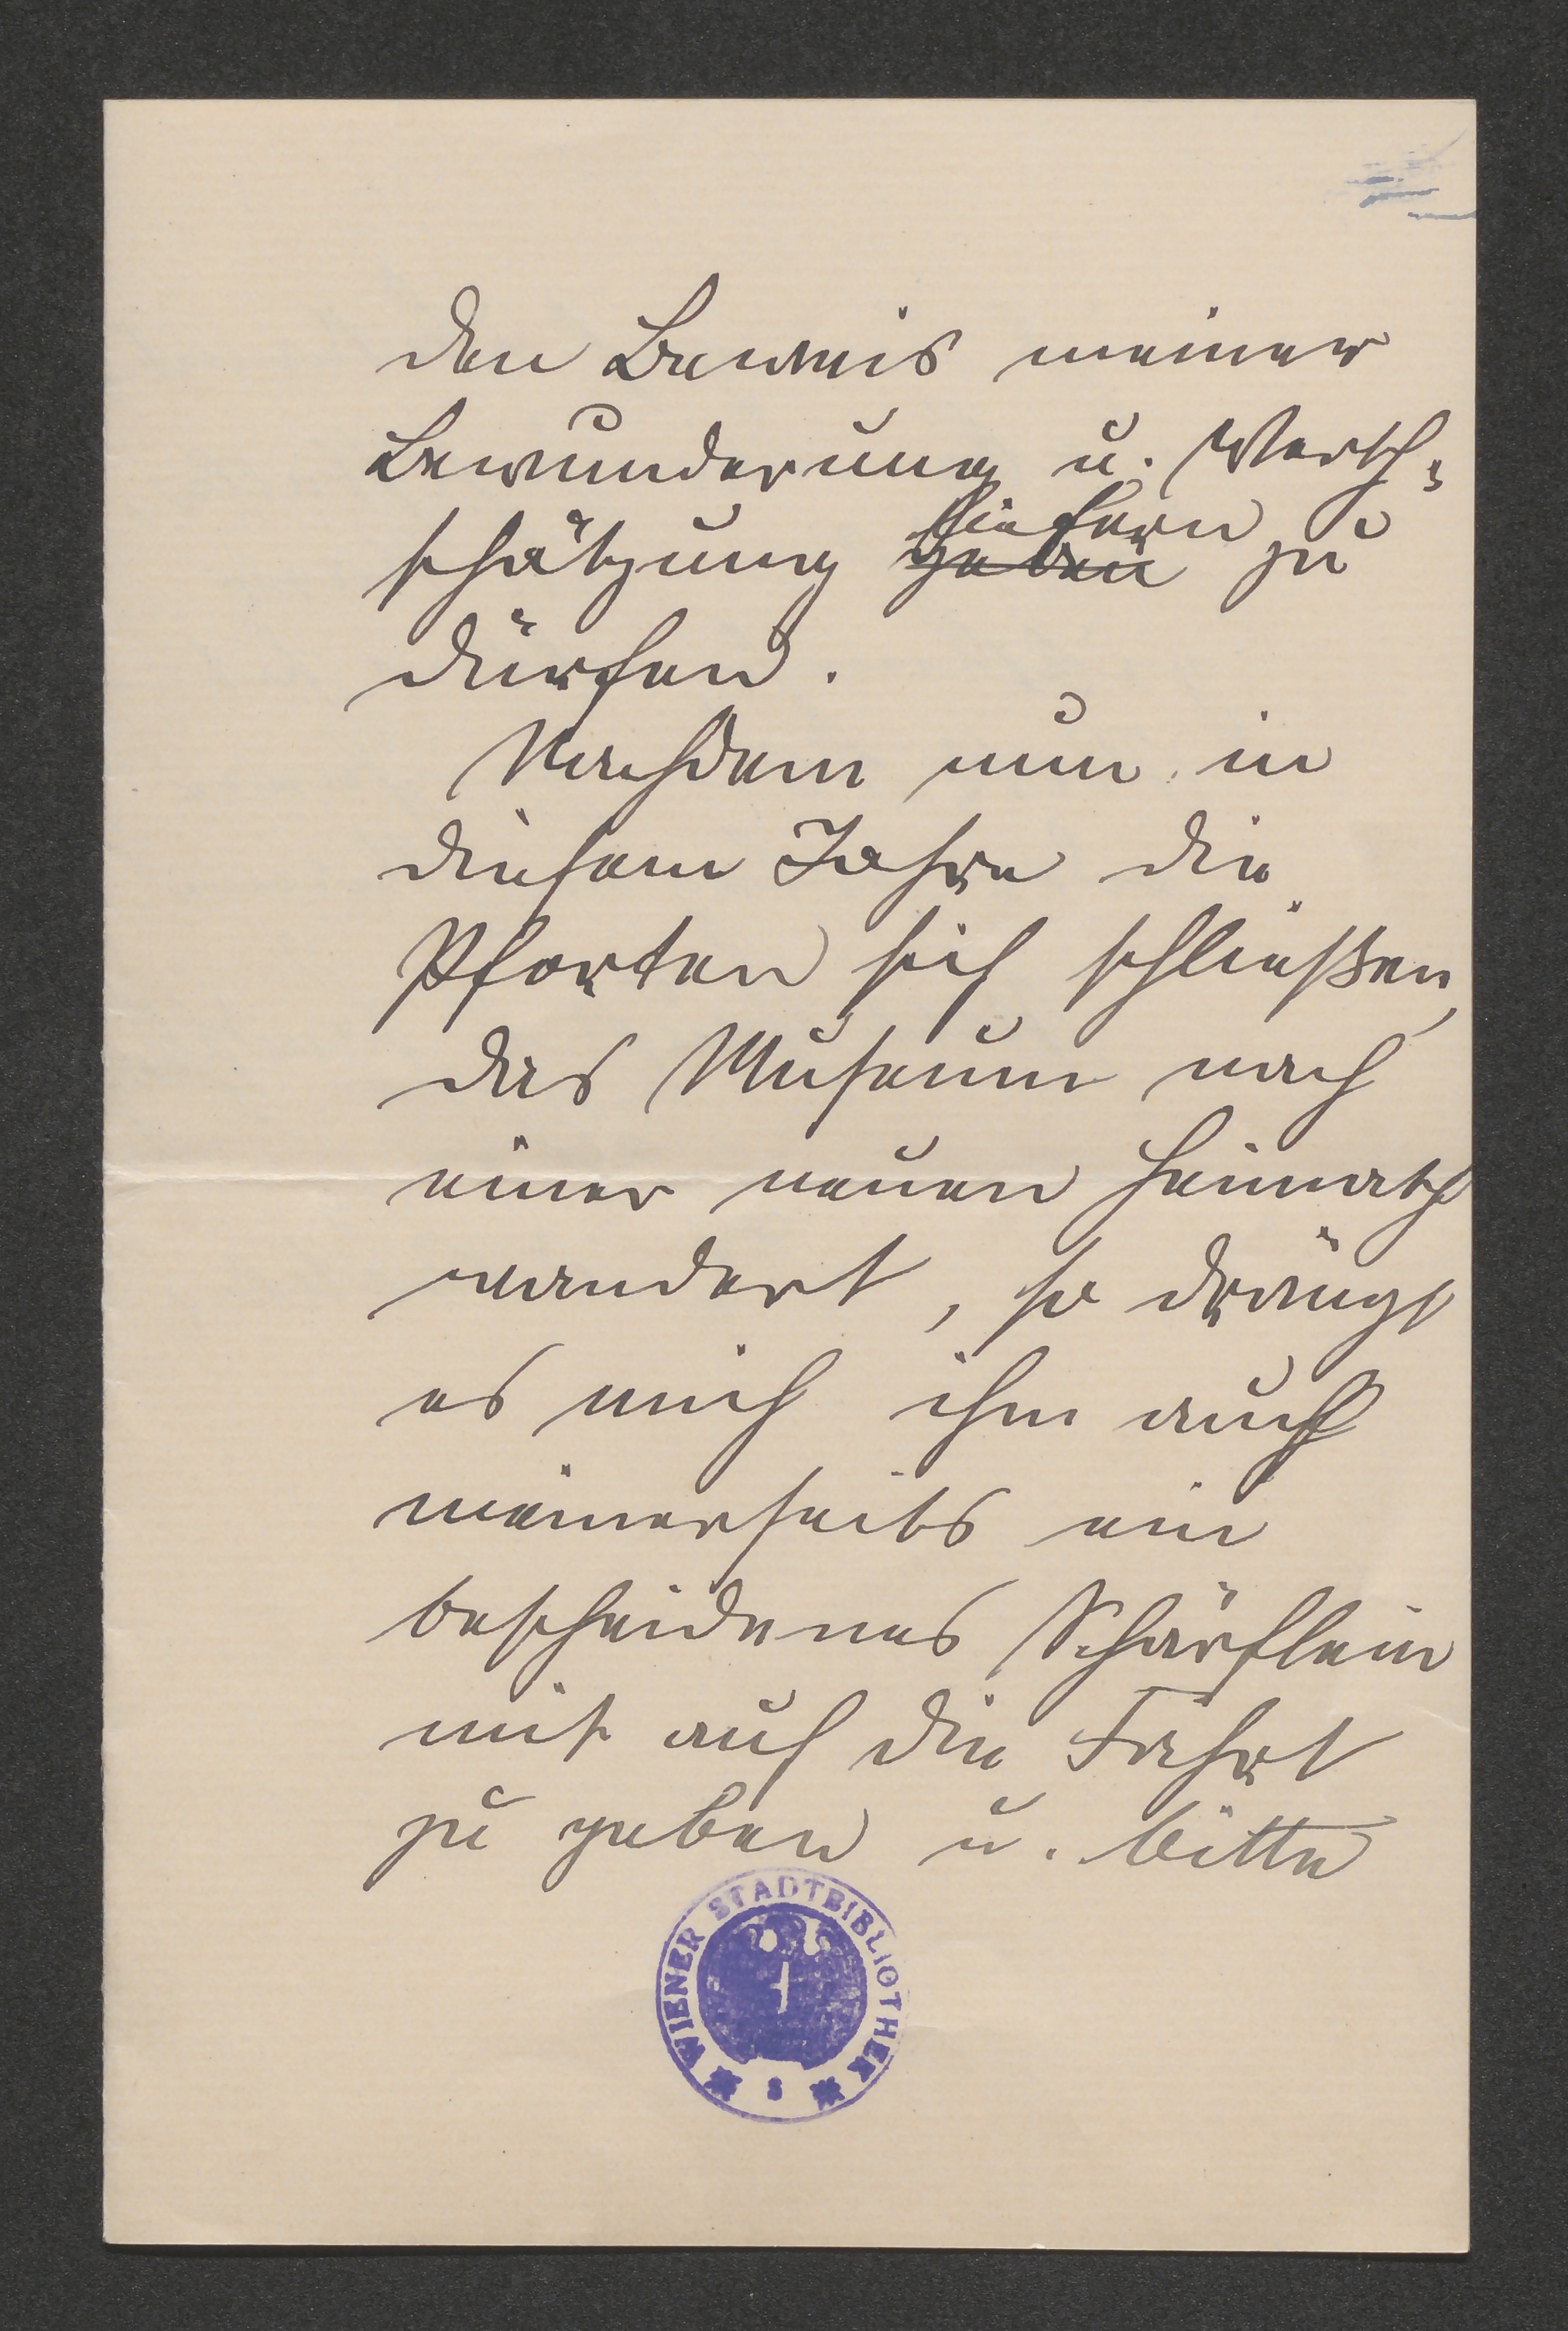 den Beweis meiner
Bewunderung u. Werth-
schätzung liefern zu
geben
dürfen.
Nachdem nun in
diesem Jahre die
Pforten sich schließen,
das Museum nach
einer neuen Heimath
wandert, so drängt
es mich ihm auch
meinerseits ein
bescheidenes Schärflein
mit auf die Fahrt
zu geben u. bitte
WIENER STADTBIBLIOTHEK
S